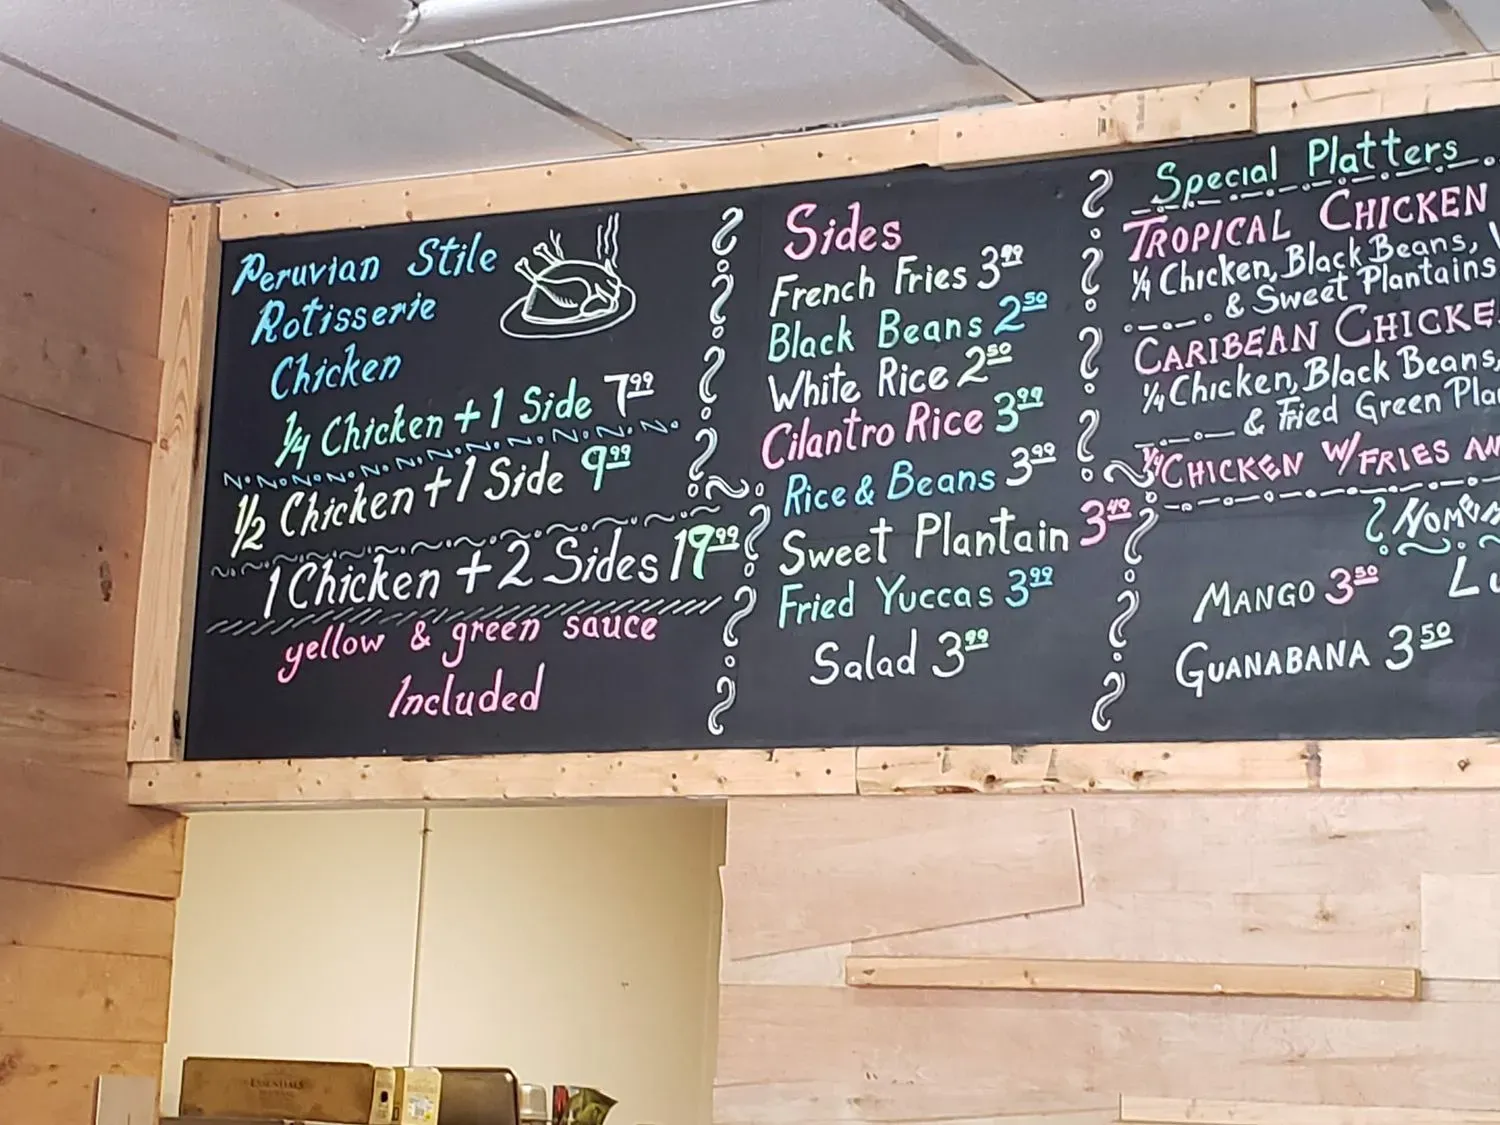 Peruvian Stile
Rotisserie
Chicken
1/4 Chicken + 1 Side 7.99
1/2 Chicken + 1 Side 9.99
1 Chicken + 2 Sides 19.99
yellow & green sauce
Included
Sides
French Fries 3.99
Black Beans 2.50
White Rice 2.50
Cilantro Rice 3.99
Rice & Beans 3.99
Sweet Plantain 3.49
Fried Yuccas 3.99
Salad 3.99
Special Platters
TROPICAL CHICKEN
1/4 Chicken, Black Beans,
& Sweet Plantains
CARIBEAN CHICKE
1/4 Chicken, Black Beans,
& Fried Green Pla
1/4 CHICKEN W/FRIES AN
MANGO 3.50
GUANABANA 3.50
ESSENTIALS